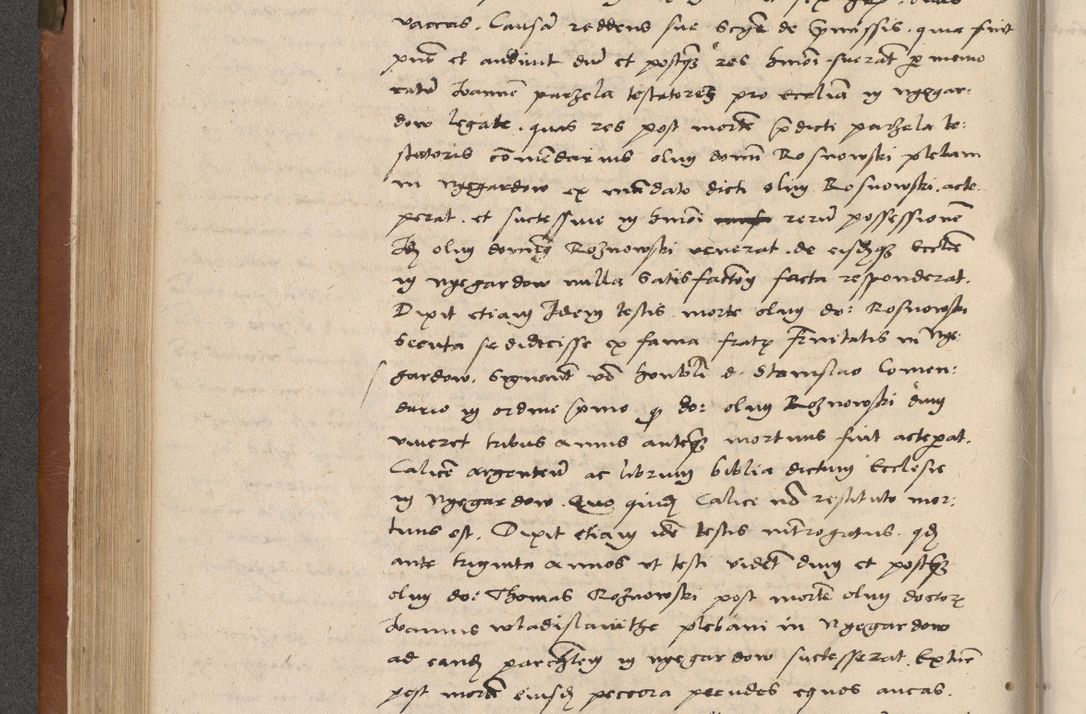 vaccas. Causam reddens sue scie de premissis. quia fuit
pns et audivit dum et postq res hmoi fuerant p memo
ratum Ioannem parzela testatorem pro ecclia in Nyegar
dow legate. quas res post mortem predicti parzela te:
statoris commendarius olim domini Rosnowski plebani
in Nyegardow ex mandato dicti olim Rosnowski. acce
perat. et successive in hmoi rerum possessionem
Idem olim dominus Roznowski venerat. de eisdemq Ecclie
in nyegardow nulla satisfactio facta responderat.
Dixit etiam Idem testis morte olim do: Rosnowski
secuta se didicisse ex fama fratrum Trinitatis in Nye
gardow. honbli d. Stanislao Comen:
dario in ordine primo q do: olim Roznowski dum
viveret tribus annis anteq mortuus fuit acceperat.
Calicem argenteum ac librum biblia dictum Ecclesie
in Nyegardow. Quo quidem Calice non restituto mor:
tuus est. Dixit etiam idem testis interrogatus. qd
ante triginta annos ut testi videtur dum et postq
olim do: Thomas Roznowski post mortem olim doctoris
Ioannis wladislavithe plebani in Nyegardow
ad eandem parochiem in nyegardow successerat. Extunc
post mortem eiusdem peccora pecudes equos aucas.